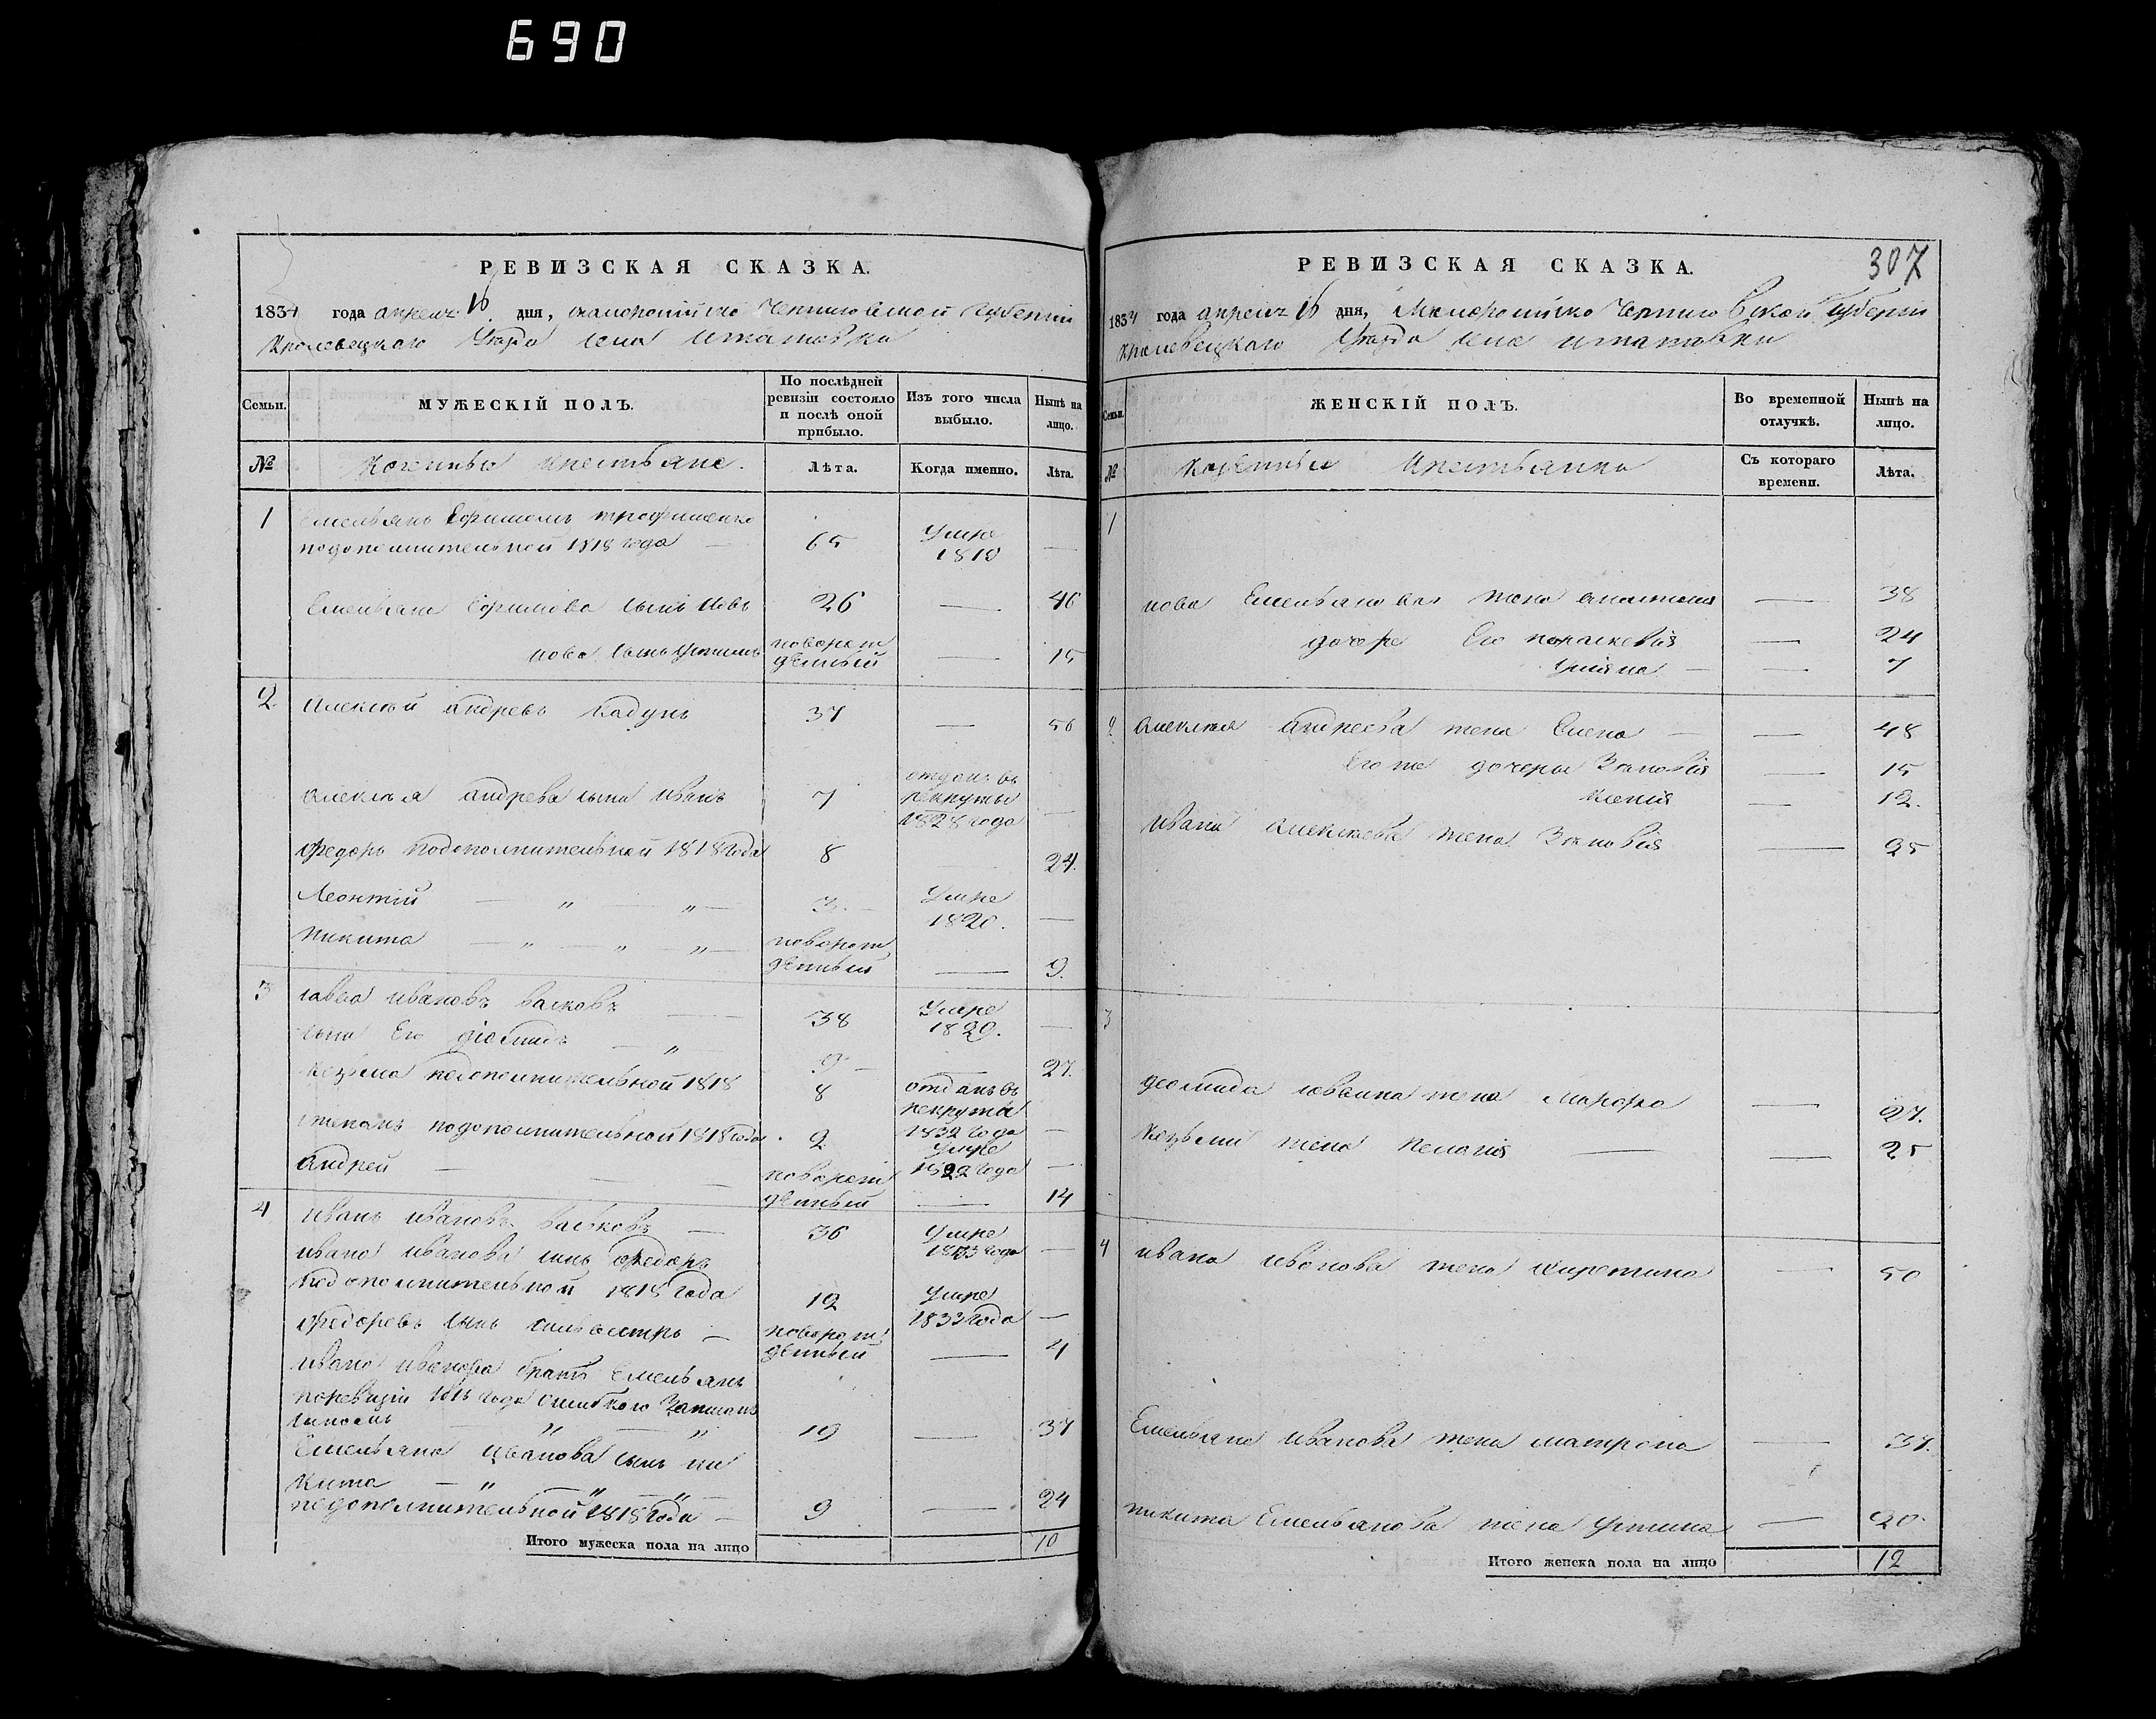 690
РЕВИЗСКАЯ СКАЗКА.
1834 года апреля 16 дня, малоросійско Черниговской Губерніи
Кролевецкаго Уезда села
Семьи.
МУЖЕСКІЙ ПОЛЪ.
По послѣдней ревизіи состояло и послѣ оной прибыло.
Изъ того числа выбыло.
Нынѣ на лицо.
№
крестьяне.
Лѣта.
Когда именно.
Лѣта.
1
Емельянъ Ефимовъ трофименко
подополнительной 1818 года — 65 Умре 1819 —
Емельяна Ефимова сынъ Іовъ 26 — 46
Іова сынъ новорожденный — 15
2 Алексѣй андреевъ 37 — 50
Алексѣя андреева сынъ Иванъ 7 отданъ въ рекруты 1828 года —
Федоръ подополнительной 1818 года 8 24.
Леонтій — „ — „ — 3. — Умре 1820. —
Никита — „ — „ — „ — новорожденный — 9.
3 Савва Ивановъ Васковъ — 38 Умре 1829. —
сынъ Его діомидъ — „ — 9 — — 27.
Козьма подополнительной 1818 8 отданъ въ рекруты 1832 года —
степанъ подополнительной 1818 года 2 Умре 1822 года —
андрей — новорожденный — 14
4 Иванъ Ивановъ Васковъ — 36 Умре 1833 года —
Ивана Иванова сынъ Федоръ
подополнительной 1818 года 12 Умре 1833 года —
Федоровъ сынъ сильвестръ — новорожденный — 4
Ивана Иванова братъ Емельянъ
поревизіи года ошибкою Записанъ
сыномъ „ „ 19 — 37
Емельяна Иванова сынъ ни
кита — „ — „ — „ —
подополнительной 1818 года — 9 — 24
Итого мужеска пола на лицо 10
307
РЕВИЗСКАЯ СКАЗКА.
1834 года апреля 16 дня, Малоросійско Черниговской Губерніи
Кролевецкаго Уезда села
Семьи.
ЖЕНСКІЙ ПОЛЪ.
Во временной отлучкѣ.
Нынѣ на лицо.
№
крестьянки
Съ котораго времени.
Лѣта.
1
Іова Емельянова жена — 38
дочери Его параскевія — 24
Уліяна — — 7
2 Алексѣя андреева жена Елена — — 48
Его же дочери Зиновія — 15
— 12.
Ивана алексѣева жена Зиновія — 25
3
діомида саввина жена Марфа — 27.
Козьмы жена Пелагія — — 25
4 Ивана Иванова жена — 50
Емельяна Иванова жена матрона — 37.
никита Емельянова жена Устина — 20.
Итого женска пола на лицо 12